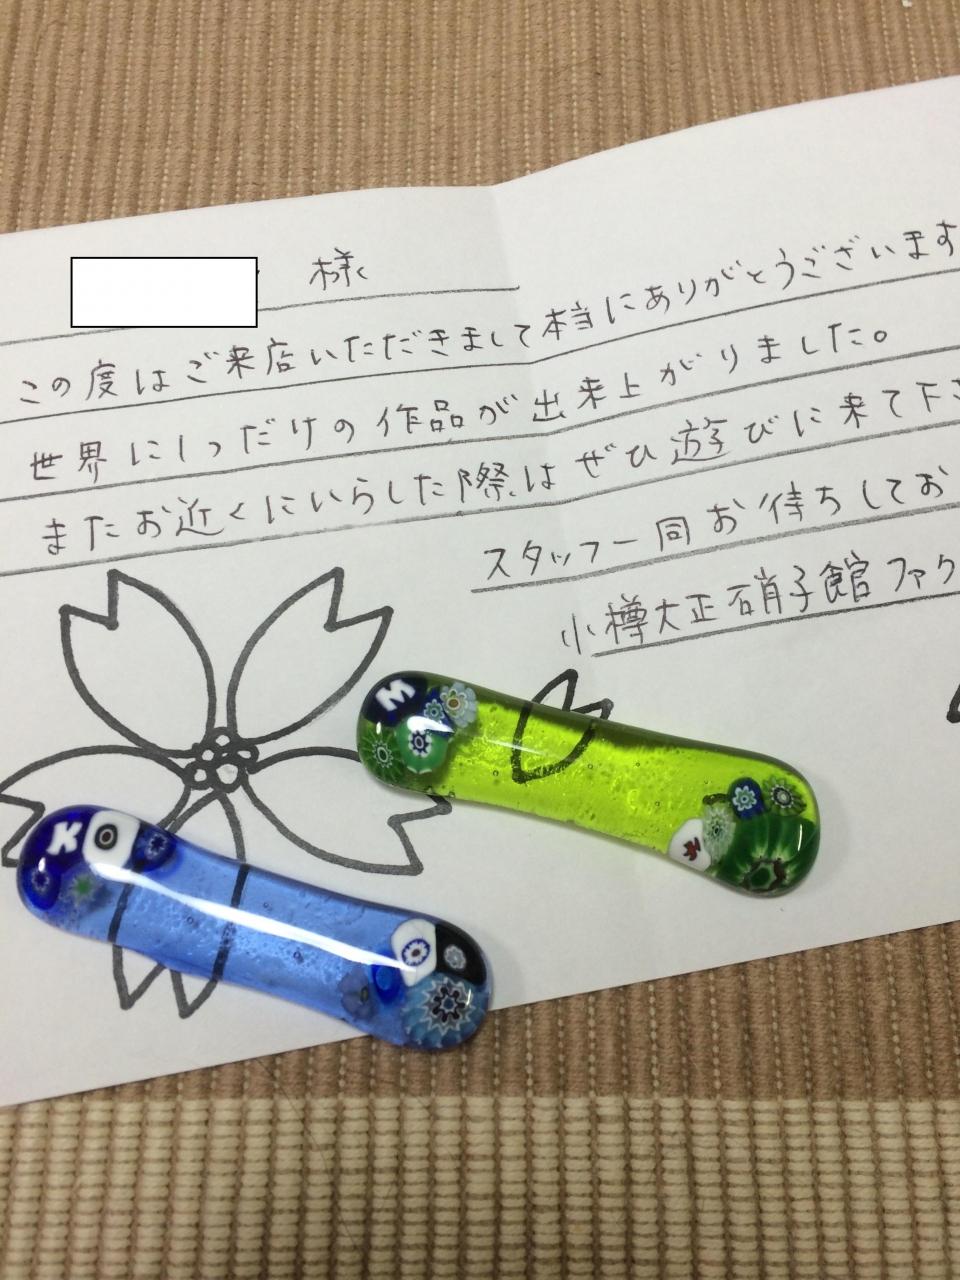 様
この度はご来店いただきまして本当にありがとうございます
世界に1つだけの作品が出来上がりました。
またお近くにいらした際はぜひ遊びに来て下さ
スタッフ一同お待ちしてお
小樽大正硝子館ファク
M
K